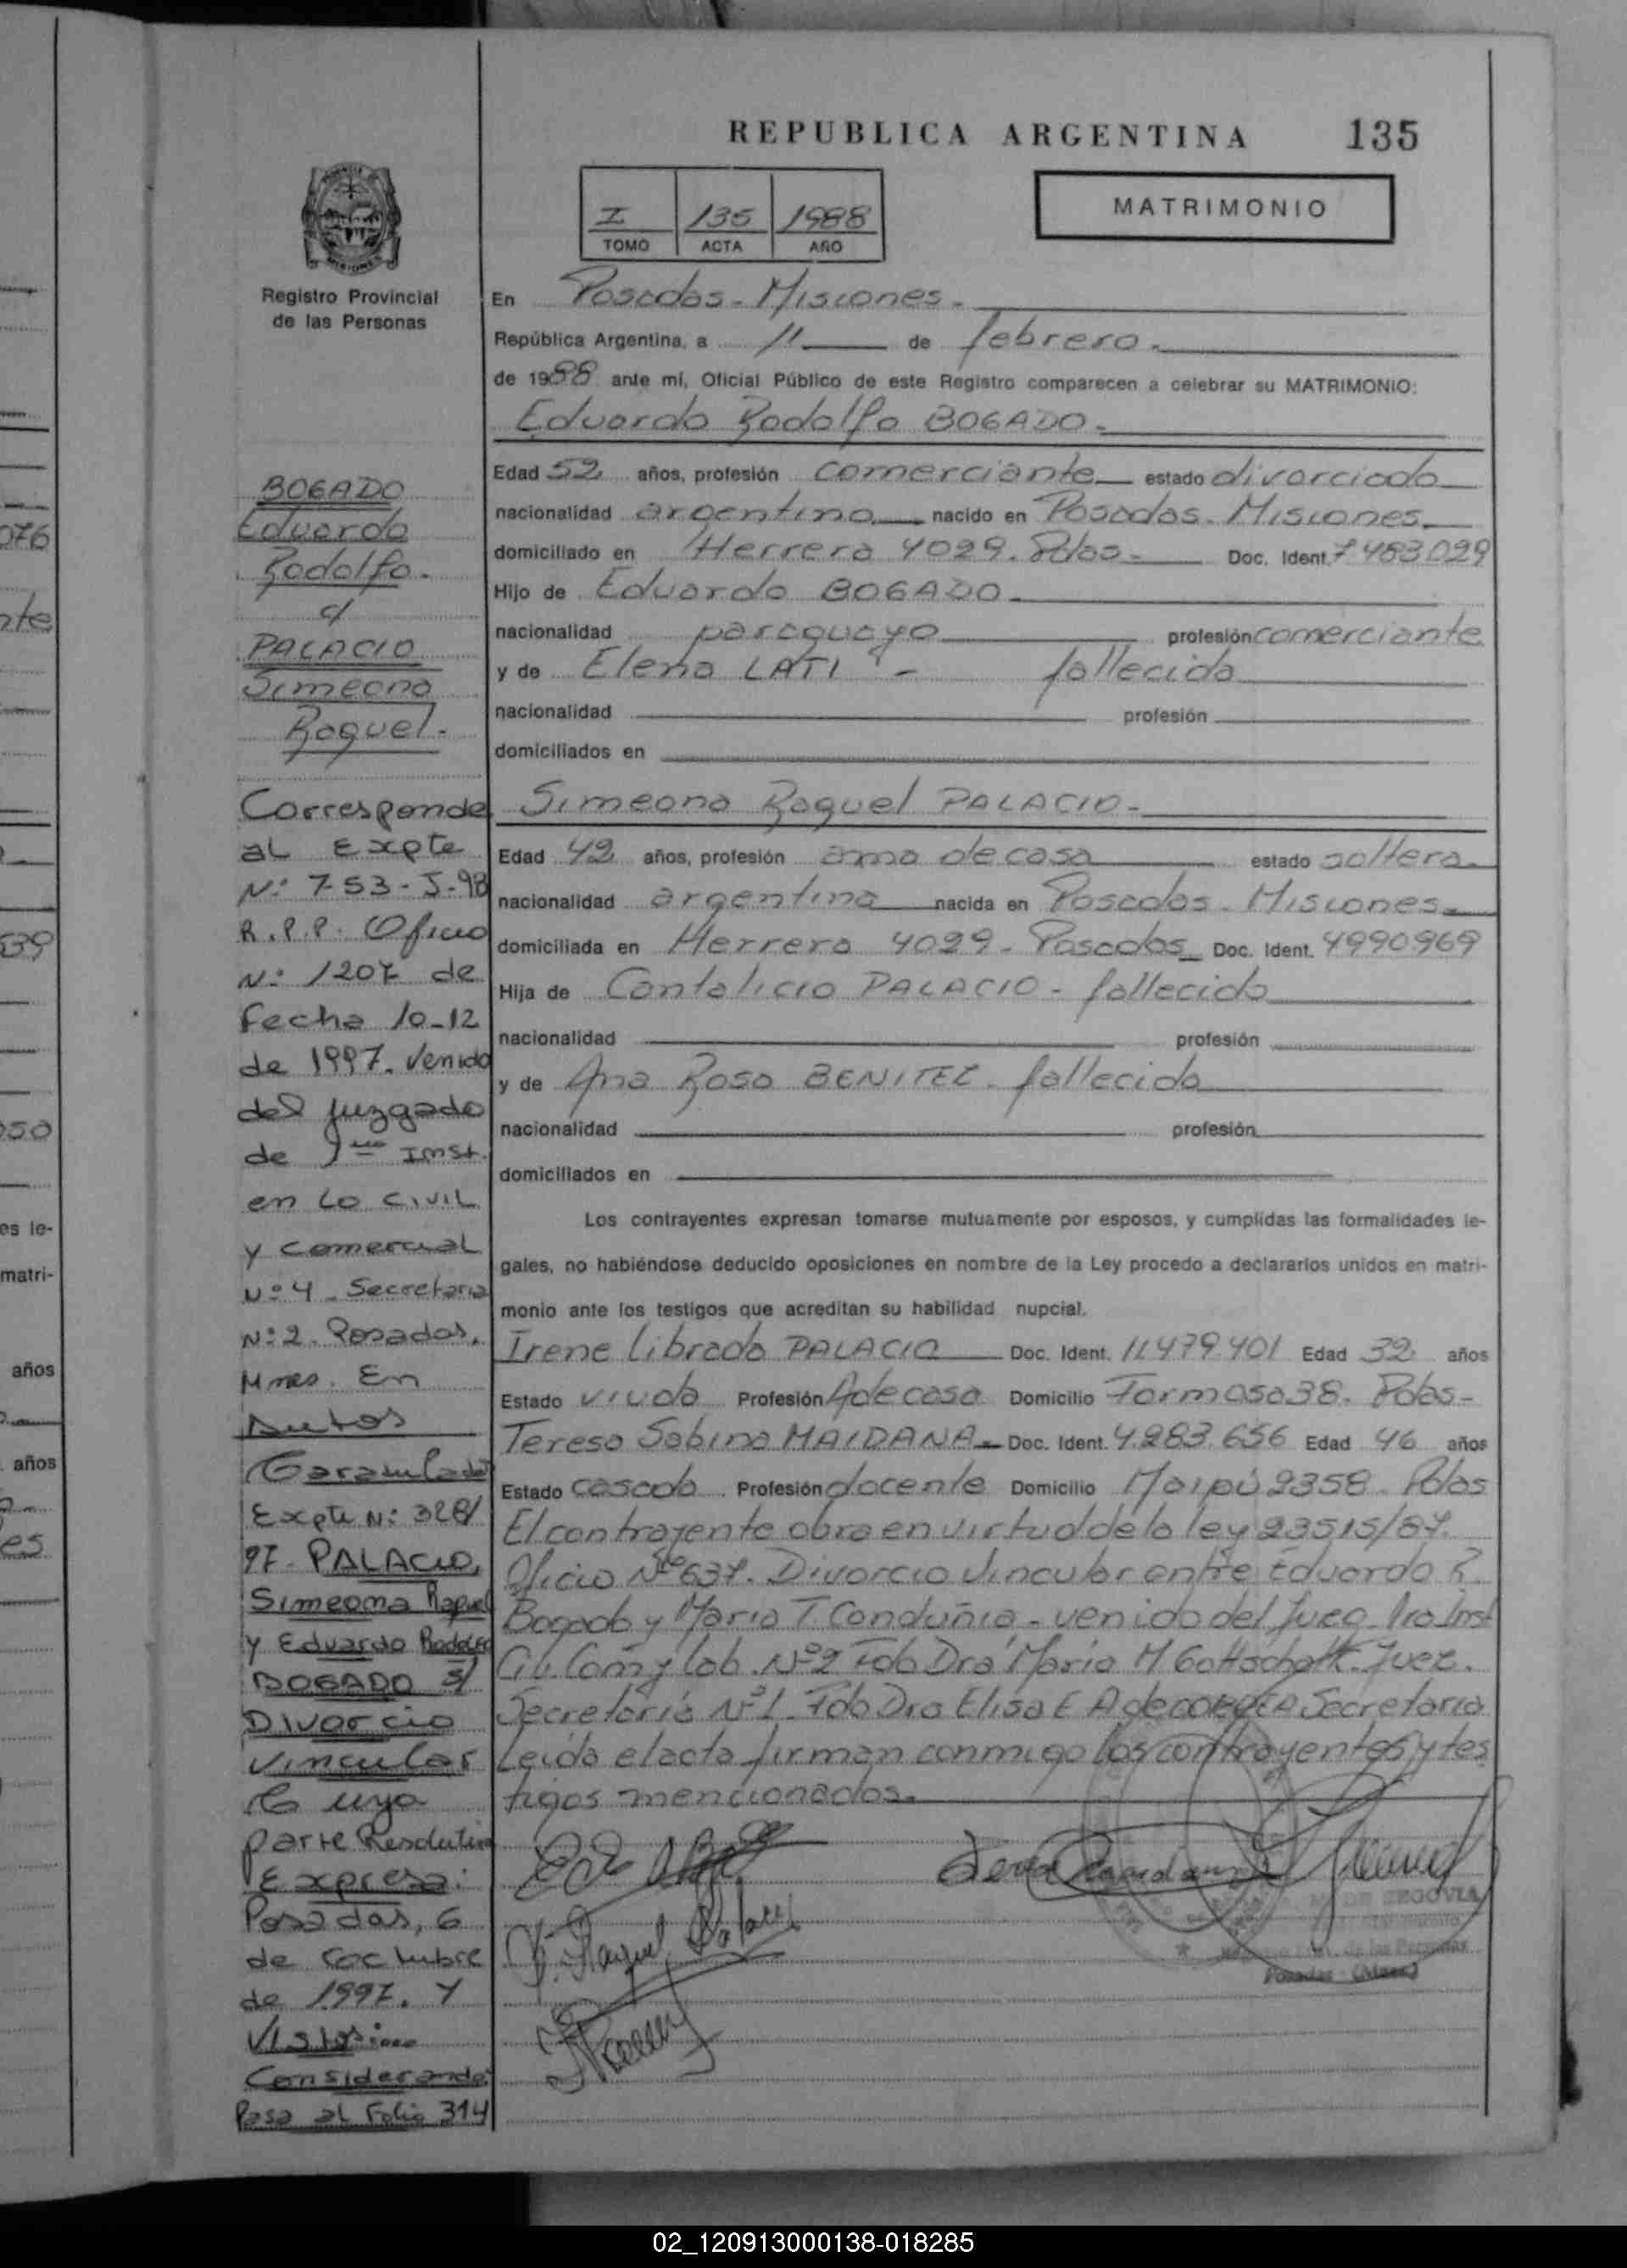 REPUBLICA ARGENTINA 135
I 135 1988
TOMO ACTA AÑO
MATRIMONIO
Registro Provincial
de las Personas
En Posadas - Misiones.
República Argentina, a 11 de febrero.
de 1988 ante mí, Oficial Público de este Registro comparecen a celebrar su MATRIMONIO:
Eduardo Rodolfo BOGADO.
Edad 52 años, profesión comerciante estado divorciado
nacionalidad argentina nacido en Posadas. Misiones.
domiciliado en Herrera 4029. Pdas. Doc. Ident. 7483029
Hijo de Eduardo BOGADO.
nacionalidad paraguayo profesión comerciante
y de Elena LATI - fallecida
nacionalidad profesión
domiciliados en
Simeona Raquel PALACIO.
Edad 42 años, profesión ama de casa estado soltera.
nacionalidad argentina nacida en Posadas. Misiones.
domiciliada en Herrera 4029 - Posadas Doc. Ident. 4990969
Hija de Cantalicio PALACIO - fallecido
nacionalidad profesión
y de Ana Rosa BENITEZ - fallecida
nacionalidad profesión
domiciliados en
Los contrayentes expresan tomarse mutuamente por esposos, y cumplidas las formalidades le-
gales, no habiéndose deducido oposiciones en nombre de la Ley procedo a declararlos unidos en matri-
monio ante los testigos que acreditan su habilidad nupcial.
Irene Librada PALACIO Doc. Ident. 11479401 Edad 32 años
Estado viuda Profesión A de casa Domicilio Formosa 38. Pdas-
Teresa Sabina MAIDANA. Doc. Ident. 4.283.656 Edad 46 años
Estado casada Profesión docente Domicilio Maipú 2358. Pdas
El contrayente obra en virtud de la ley 23515/87.
Oficio Nº 637. Divorcio Vincular entre Eduardo R.
Bogado y Maria T. - venido del Juzg. 1ra Inst
Civ. Com y lab. Nº 2 Fdo Dra Maria M Gottschalk. Juez.
Secretaría Nº 1. Fdo Dra Elisa E A de Secretaria
Leída el acta firman conmigo los contrayentes y tes
tigos mencionados.
BOGADO
Eduardo
Rodolfo.
c/
PALACIO
Simeona
Raquel.
Corresponde
al Expte
Nº 753-J-98
R.P.P. Oficio
Nº 1207 de
fecha 10-12
de 1997. Venido
del Juzgado
de 1era Inst.
en Lo Civil
y Comercial
Nº 4. Secretaria
Nº 2. Posadas,
Mnes. En
Autos
Caratulados
Expte Nº 328/
97 - PALACIO,
Simeona Raquel
y Eduardo Rodolfo
BOGADO s/
Divorcio
Vincular
Cuya
parte Resolutiva
Expresa:
Posadas, 6
de octubre
de 1997. Y
Vistos:
Considerando:
Pasa al Folio 314
S. Raquel Palacio
DE SEGOVIA
de las Personas
Posadas - (Mnes)
076
nte
639
050
es le-
matri-
años
años
es
02_120913000138-018285